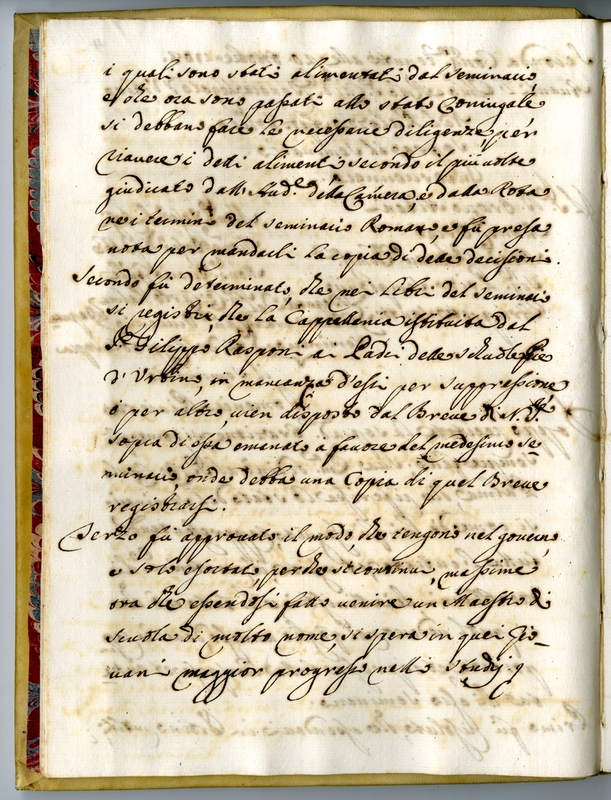 i quali sono stati alimentati dal seminario
e che ora sono passati allo stato Coniugale
si debbano fare le necessarie diligenze per
riavere i detti alimenti secondo il più volte
giudicato dall' Aud.e della Camera, e dalla Rota
ne i termini del seminario Romano, e fù presa
nota per mandarli la copia di dette decisioni.
Secondo fù determinato, che nei libri del seminario
si registri, che la Cappellania istituita dal
Filippo Rasponi ai Padri delle scuole Pie
d' Urbino, in mancanza d'essi per suppressione
ò per altro, vien disposto dal Breve di N. S.re
sopra di essa emanato à favore del medesimo se-
minario onde debba una Copia di quel Breve
registrarsi.
Terzo fù approvato il modo, che tengono nel governo,
e solo esortato, perche si continui, massime
ora che essendosi fatto venire un Maestro di
scuola di molto nome, si spera in quei Gio-
vani maggior progresso nelli studij.